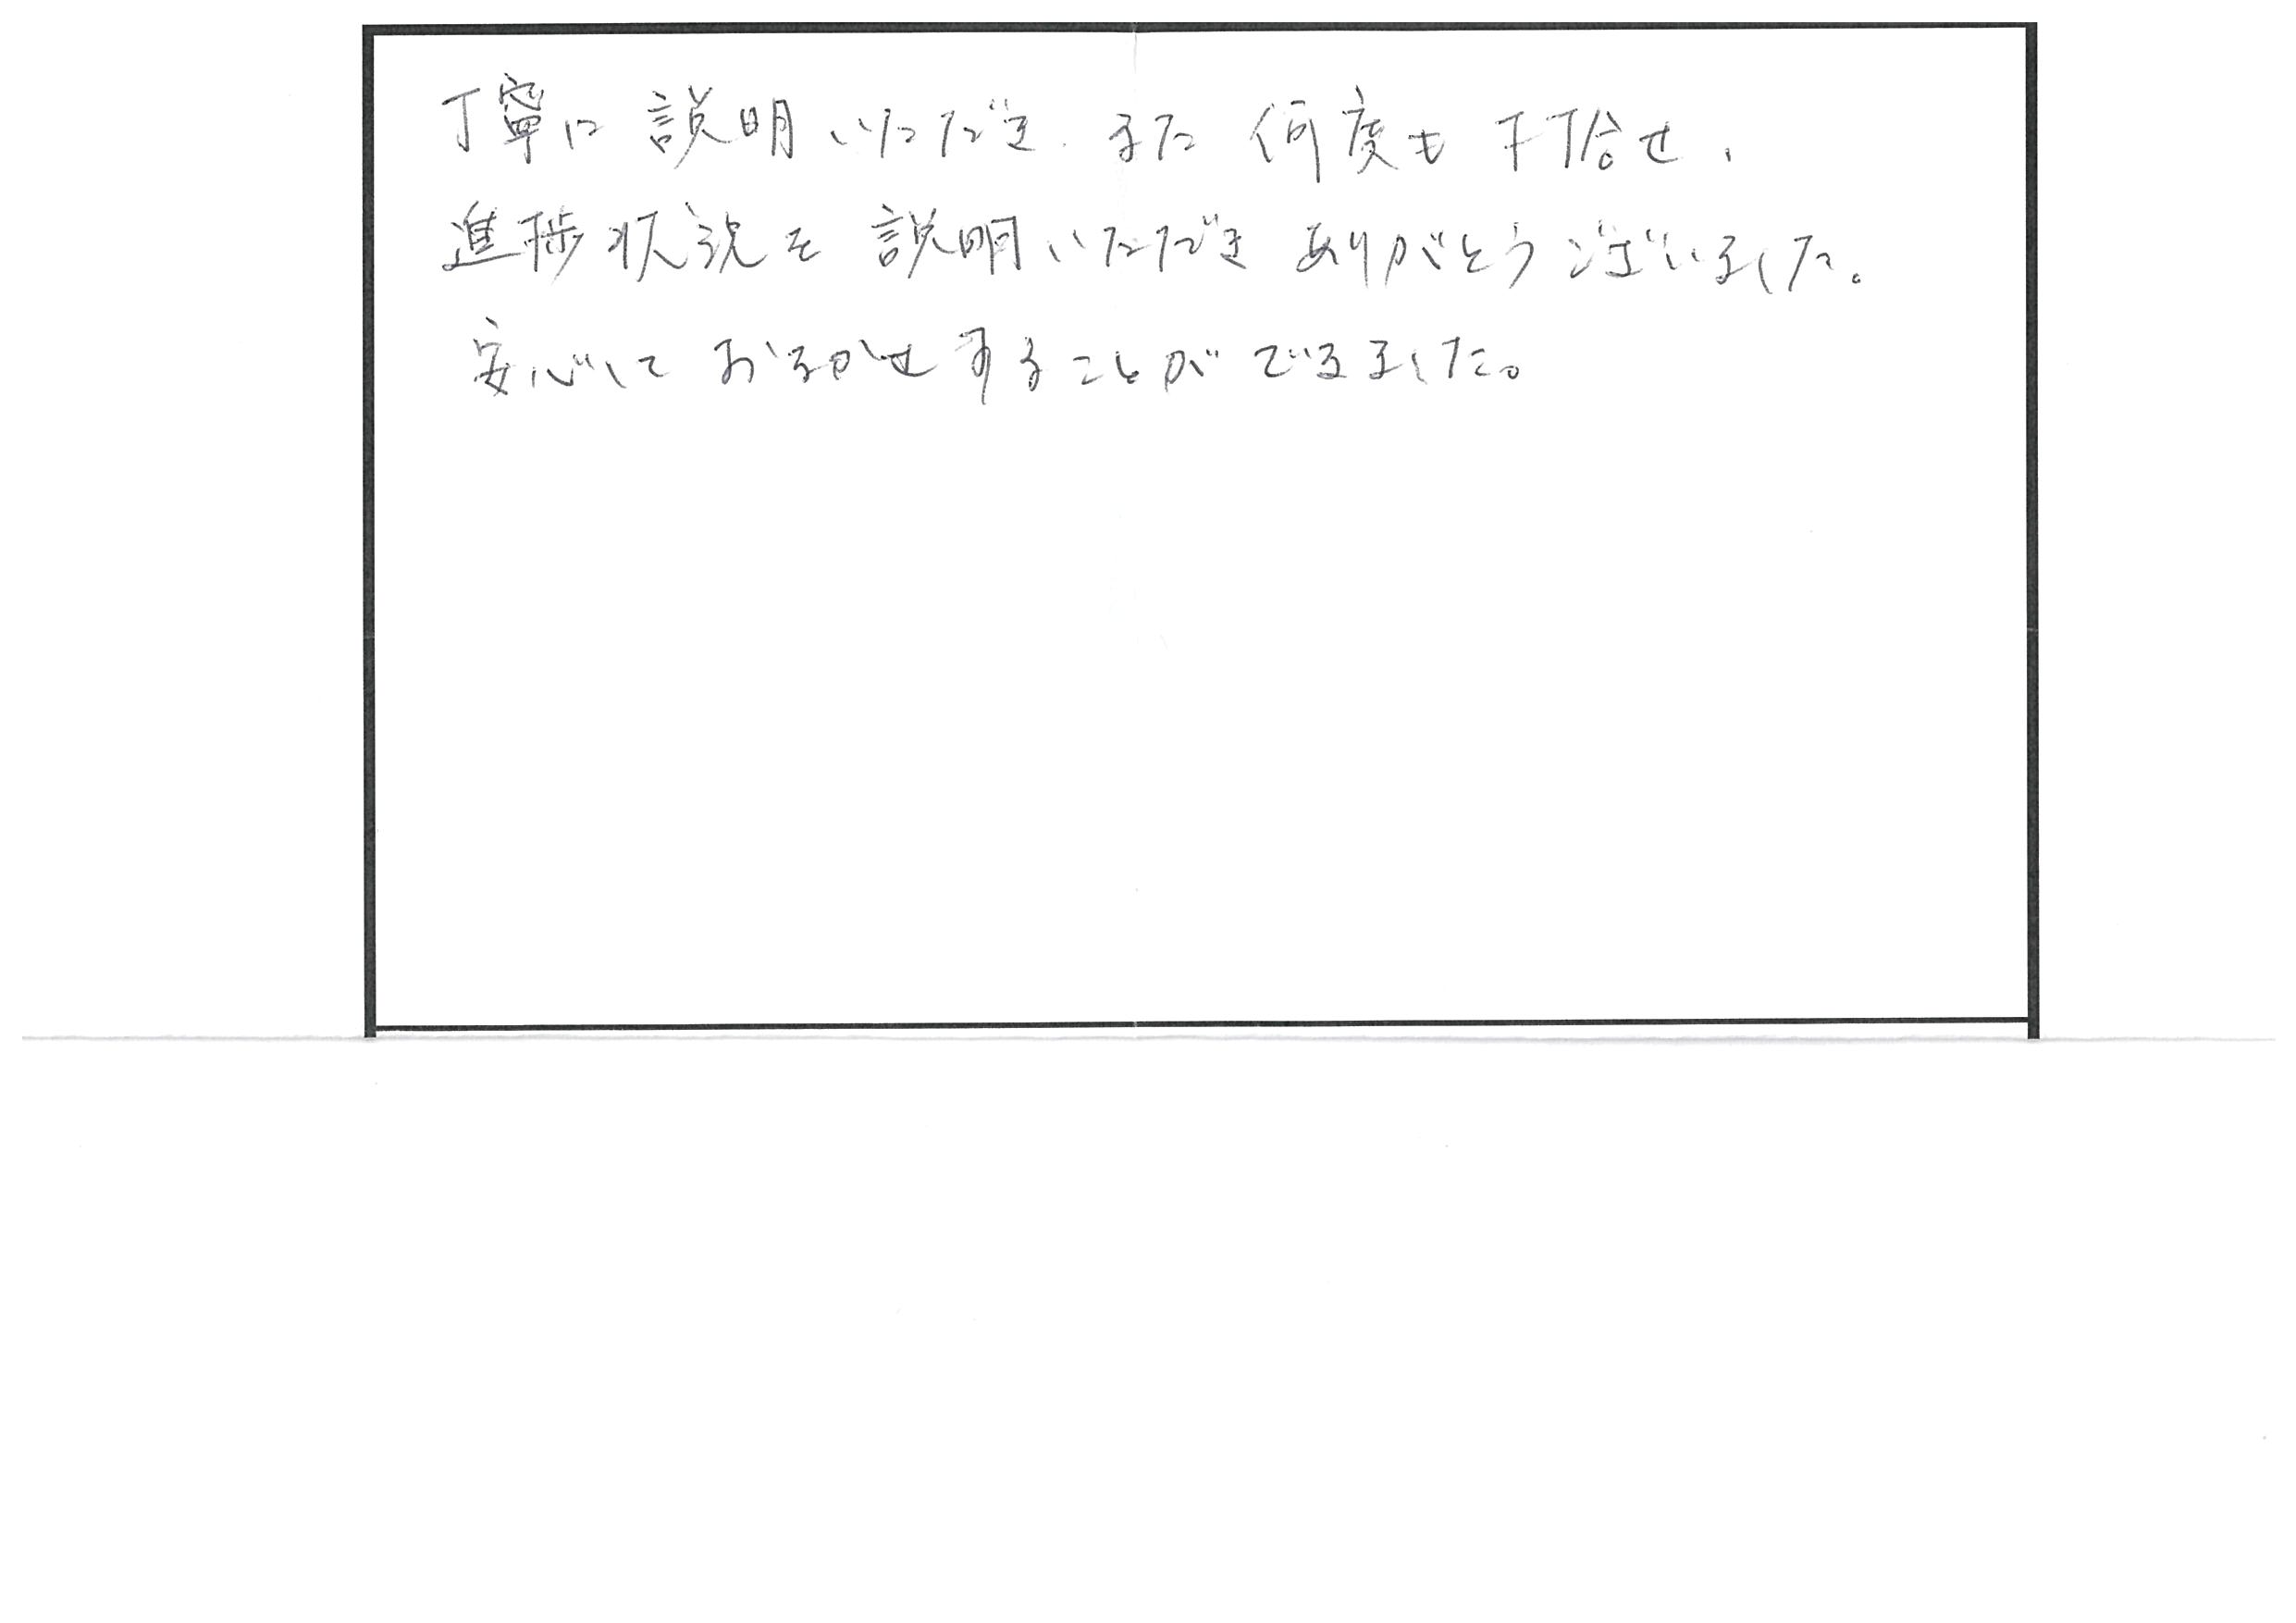 丁寧に説明いただき、また何度も打合せ、
進捗状況を説明いただきありがとうございました。
安心しておまかせすることができました。